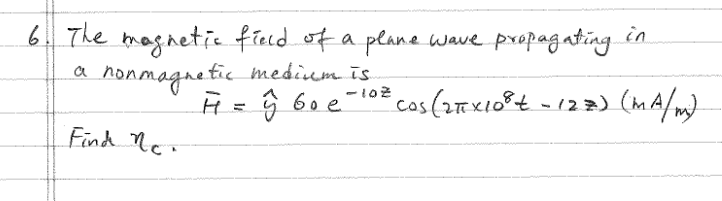 6. The magnetic field of a plane wave propagating in
a nonmagnetic medium is
H̄ = ŷ 60 e^{-10z} cos(2π×10⁸t - 12z) (mA/m)
Find η_c.